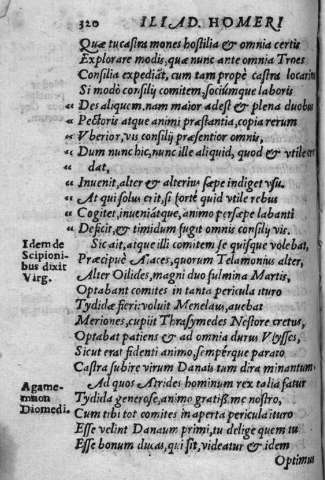 320 ILIAD. HOMERI
Quæ tu castra mones hostilia & omnia certis
Explorare modis, quæ nunc ante omnia Troes
Consilia expediāt, cum tam propè castra locarint
Si modò consilij comitem, sociumque laboris
“ Des aliquem, nam maior adest & plena duobus
“ Pectoris atque animi præstantia, copia rerum
“ Vberior, vis consilij præsentior omnis,
“ Dum nunc hic, nunc ille aliquid, quod & vtile
“ dat,
“ Inuenit, alter & alterius sæpe indiget vsu.
“ At qui solus erit, si fortè quid vtile rebus
“ Cogitet, inueniatque, animo persæpe labanti
“ Deficit, & timidum fugit omnis consilij vis.
Idem de Scipioni-
bus dixit
Virg.
Sic ait, atque illi comitem se quisque volebat,
Præcipuè Aiaces, quorum Telamonius alter,
Alter Oilides, magni duo fulmina Martis,
Optabant comites in tanta pericula ituro
Tydidæ fieri: voluit Menelaus, auebat
Meriones, cupijt Thrasymedes Nestore cretus,
Optabat patiens & ad omnia durus Vlysses,
Sicut erat fidenti animo, sempérque parato
Castra subire virum Danaû tam dira minantum
Agame-
mnon
Diomedi.
Ad quos Atrides hominum rex talia fatur
Tydida generose, animo gratiss. me nostro,
Cum tibi tot comites in aperta pericula ituro
Esse velint Danaum primi, tu delige quem tu
Esse bonum ducas, qui sit, videatur & idem
Optimus